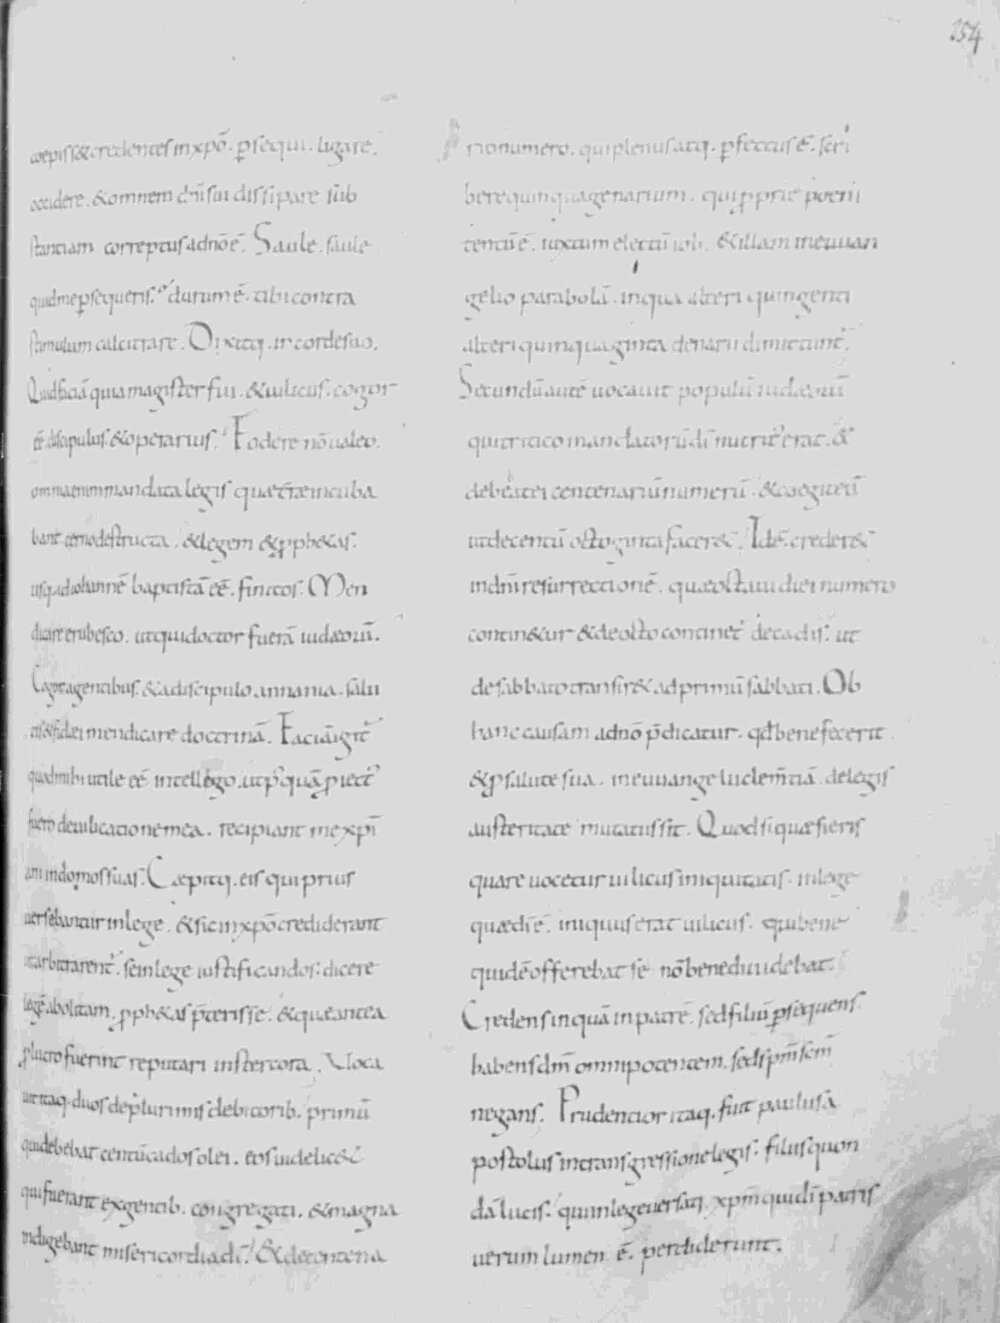 254
coepiss& credentes inxpō. p̱sequi. ligare.
occidere. &omnem dn̄i sui dissipare sub
stantiam correptus adnō ē. Saule. saule
quid me p̱sequeris. durum ē. tibi contra
stimulum calcitrare. Dixitq. in corde suo.
Quid faciā quia magister fui. & uilicus. cogor
eē discipulus. & operarius. Fodere nō ualeo.
omnia enim mandata legis quae terrae incuba
bant cerno destructa. & legem & p̱ph&as.
usq. ad iohannē baptistā eē. finitos. Men
dicare erubesco. ut qui doctor fuerā iudaeorū.
Cogor a gentibus. & a discipulo annania. salu
tis & fidei mendicare doctrinā. Faciā igit᾽
quod mihi utile eē intellego. ut p᾽quā p̱iect᾽
fuero deuilicatione mea. recipiant me xp̄i
ani in domos suas. Caepitq. eis qui prius
uersebantur in lege. & sic in xpō crediderant
ut arbitrarent᾽. se in lege iustificandos. dicere
legē abolitam. p̱ph&as p̄terisse. & quae antea
p̱ lucro fuerint reputari in stercora. Uoca
uit itaq. duos de plurimis debitorib. primū
qui debebat centū cados olei. eos uidelic&
qui fuerant ex gentib. congregati. & magna
indigebant misericordia dī. & de centena
rio numero. qui plenus atq. p̱fectus ē. scri
bere quinquagenarium. qui p̱prie poeni
tentū ē. iuxtum electū iob. & illam in euuan
gelio parabolā. in qua alteri quingenti
alteri quinquaginta denarii dimittunt᾽.
Secundū autē uocauit populū iudaeorū
qui tritico mandatorū dī nutrit᾽ erat. &
debebat ei centenariū numerū. & coegit eū
ut de centū octoginta facer&. Id ē. creder&
in dnī resurrectionē. quae octaui diei numero
contin&ur & de octo continet᾽ decadis. ut
de sabbato transir& ad primū sabbati. Ob
hanc causam adnō p̄dicatur. qđ bene fecerit
& p̱ salute sua. in euuangelii clemn̄tiā. de legis
austeritate mutatus sit. Quod si quaesieris
quare uocetur uilicus iniquitatis. in lege
quae dī ē. iniquus erat uilicus. qui bene
quidē offerebat se nō bene diuidebat.
Credens in quā in patrē. sed filiū p̱sequens.
habens dm̄ omnipotentem. sed spm̄ scm̄
negans. Prudentior itaq. fuit paulus a
postolus in transgressione legis. filiis quon
dā lucis. qui in lege uersati xpm̄ qui dī patris
uerum lumen ē. perdiderunt.